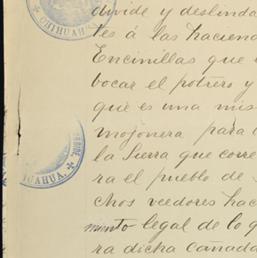 CHIHUAHUA
divide y deslinda
tes á las haciend
Encinillas que
bocar el potrero y
que es una mis
mojonera para
la Sierra que corre
ra el pueblo de
chos veedores hac
miento legal de lo q
ra dicha Cañada
HUAHUA.